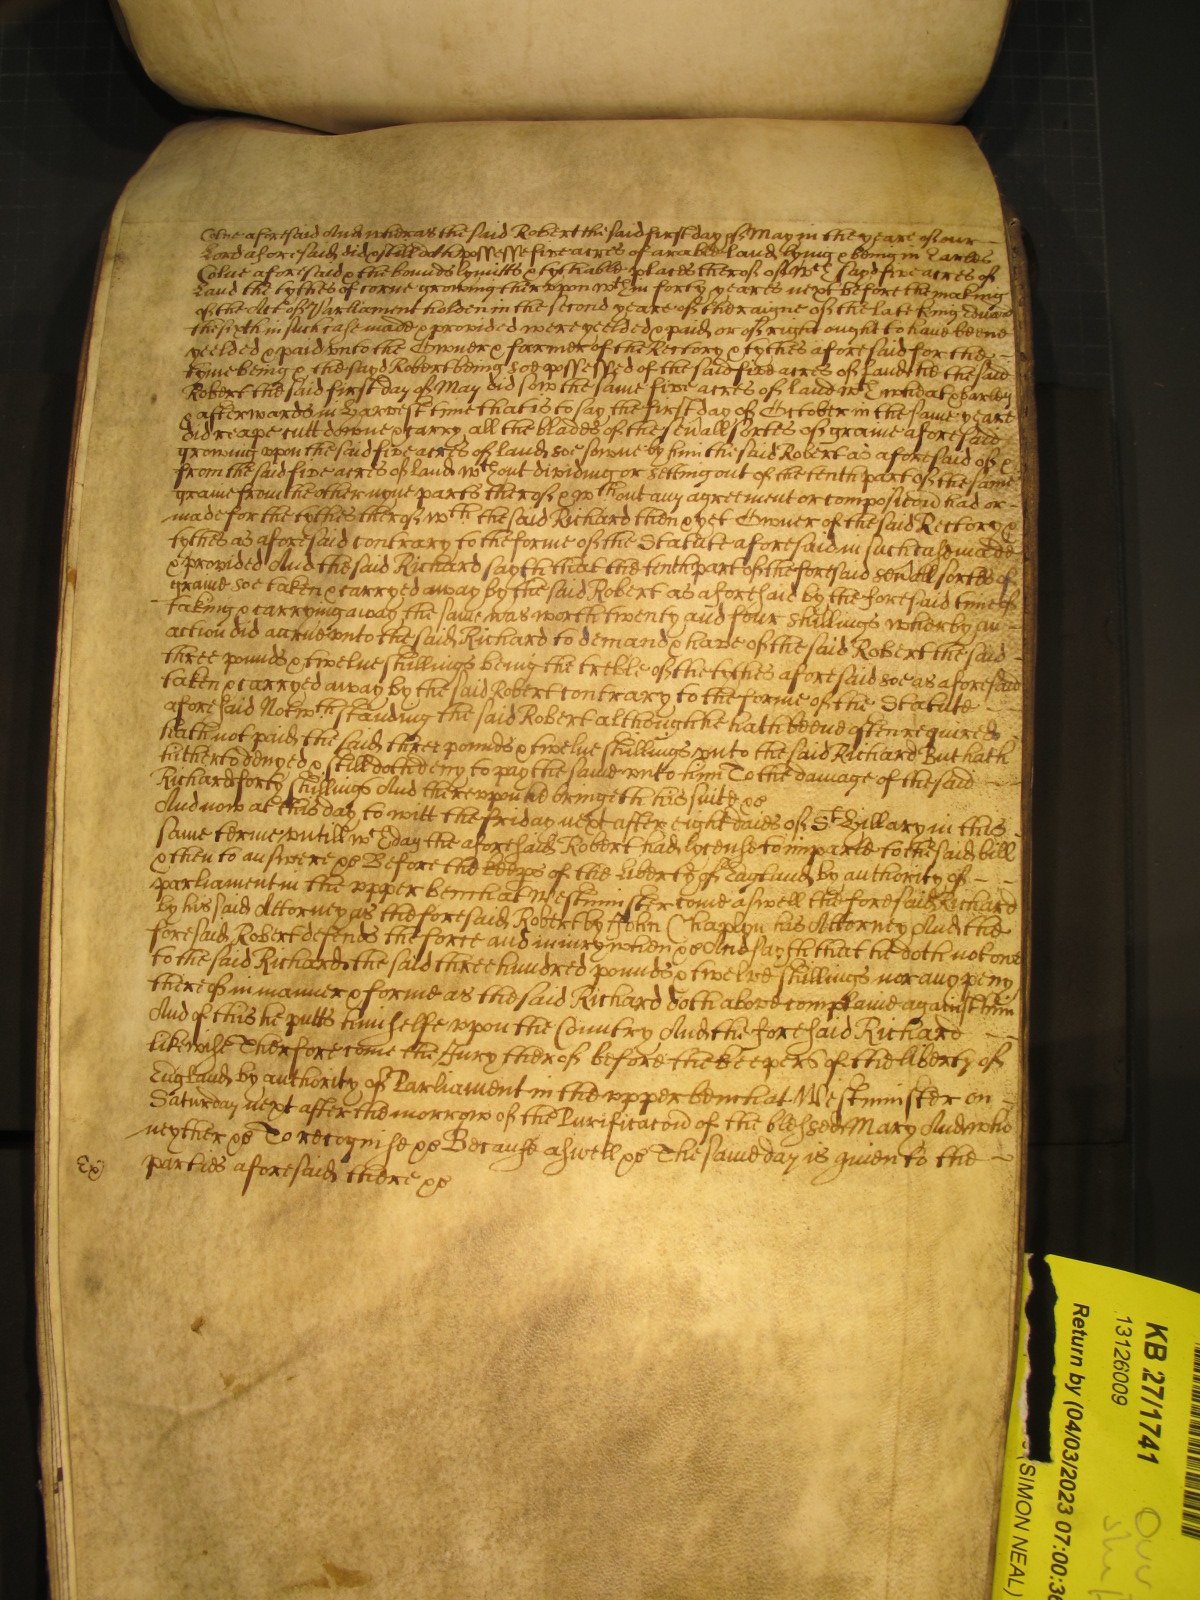 Colne aforesaid And wheras the said Robert the said first day of May in the yeare of our
Lord aforesaid did & still doth possesse five acres of arable land lying & being in Earles
Colne aforesaid & the bounds lymitts & tythable places therof of wch sayd five acres of
Land the tythes of corne growing therupon wthin forty yeares next before the making
of the Act of Parliament holden in the second yeare of the raigne of the late King Edward
the sixth in such case made & provided were yeelded & paid or of right ought to have beene
yeelded & paid unto the Owner & farmer of the Rectory & tythes aforesaid for the
tyme being & the sayd Robert being soe possessed of the said five acres of land he the said
Robert the said first day of May did sow the same five acres of land wth wheat & barley
& afterwards in Harvest time that is to say the first day of October in the same yeare
did reape cutt downe & carry all the blades of the sevall sortes of graine aforesaid
growing upon the said five acres of land soe sowne by him the said Robert as aforesaid of &
from the said five acres of land wthout dividing or setting out of the tenth part of the same
graine from the other nyne parts therof & wthout any agreement or composicon had or
made for the tythes therof wth the said Richard then & yet Owner of the said Rectory &
tythes as aforesaid contrary to the forme of the Statute aforesaid in such case made
& provided And the said Richard sayth that the tenth part of the foresaid sevall sortes of
graine soe taken & carryed away by the said Robert as aforesaid by the foresaid time of
taking & carrying away the same was worth twenty and four shillings wherby an
action did accrue unto the said Richard to demand & have of the said Robert the said
three pounds & twelve shillings being the treble of the tythes aforesaid soe as aforesaid
taken & carryed away by the said Robert contrary to the forme of the Statute
aforesaid Notwthstanding the said Robert although he hath beene often required
hath not paid the said three pounds & twelve shillings unto the said Richard But hath
hitherto denyed & still doth deny to pay the same unto him To the damage of the said
Richard forty shillings And therupon he bringeth his suite &c
And now at this day to witt the friday next after eight daies of St Hillary in this
same terme untill wch day the aforesaid Robert had lycense to imparle to the said bill
& then to answere &c Before the keeps of the Liberty of England by authority of
parliament in the upper bench at Westminster come aswell the foresaid Richard
by his said Attorney as the foresaid Robert by John Chaplyn his Attorney And the
foresaid Robert defends the force and iniury when &c And sayth that he doth not owe
to the said Richard the said three hundred pounds & twelve shillings nor any peny
therof in manner & forme as the said Richard doth above complaine against him
And of this he putts himselfe uppon the Country And the foresaid Richard
likewise Therfore come the Jury therof before the keepers of the liberty of
England by authority of Parliament in the upper bench at Westminster on
Saturday next after the morrow of the Purificacon of the blessed Mary And who
neyther &c To recognise &c Because aswell &c The same day is given to the
parties aforesaid there &c
KB 27/1741
13126009
Return by (04/03/2023 07:00:36
(SIMON NEAL)